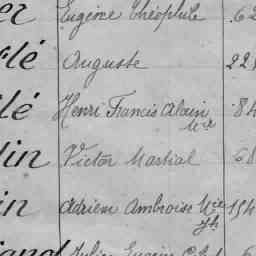 er Eugène Théophile 62
lé Auguste 221
lé Henri Francis Alain 84
Mie
lin Victor Martial 68
in Adrien Ambroise Mie 154
Jh
iand Julien Eugène